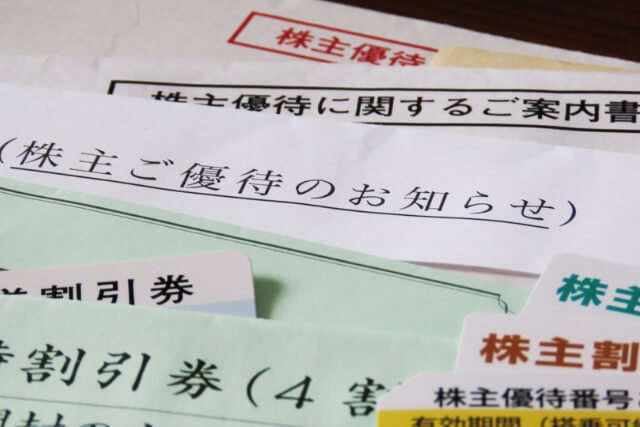 株主優待
株主優待に関するご案内書
(株主ご優待のお知らせ)
割引券
株主
割引券(4割
株主割
株主優待番号
有効期間(搭乗可